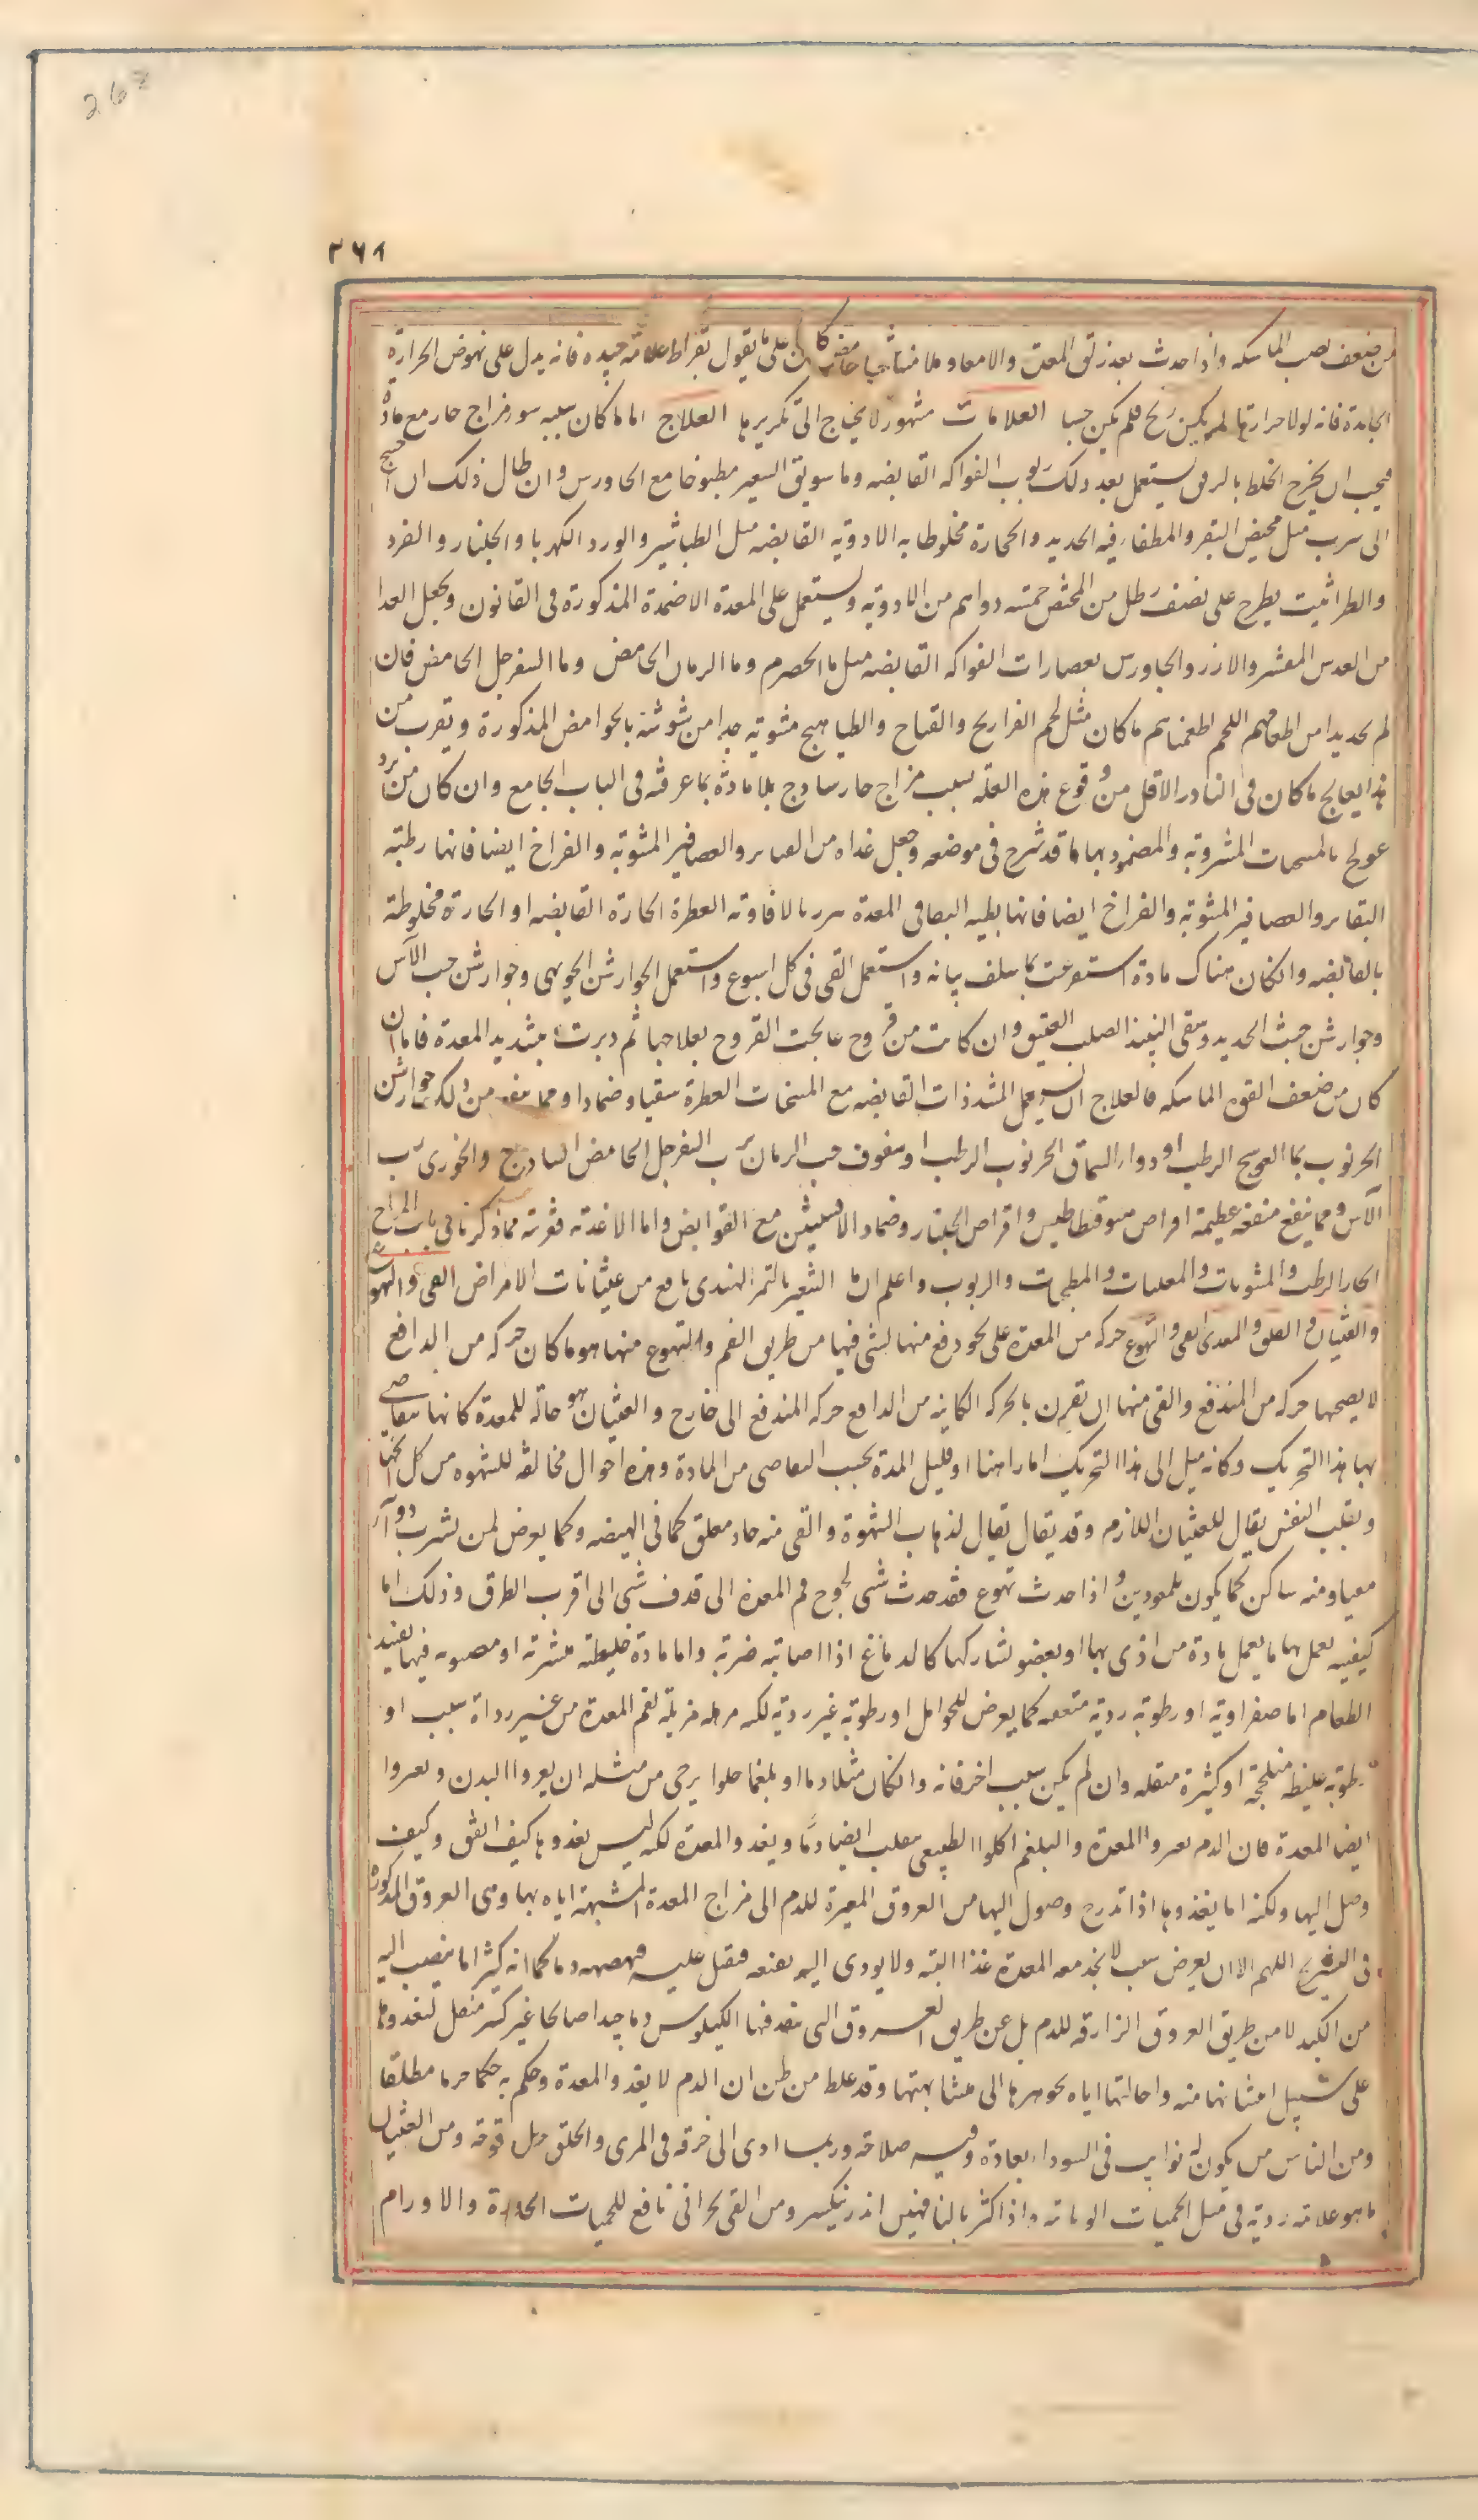 268
٢٦٨
من ضعف يصب الماسكه واذا حدث بعد زلق المعدة والامعاء وملاستها جشا حامض كان على ما يقول بقراط علامة جيده فانه يدل على نهوض الحرارة
الجامدة فانه لولا حرارة ما لم يكن ريح فلم يكن جشا العلامات مشهورة لا يحتاج الى تكريرها العلاج اما ما كان سببه سوء مزاج حار مع مادة
فيجب ان يخرج الخلط بالرفق يستعمل بعد ذلك ربوب الفواكه القابضه وماء سويق الشعير مطبوخا مع الجاورس وان طال ذلك احتيج
الى شرب مثل مخيض البقر والمطفاء فيه الحديد والحجارة مخلوطا به الادوية القابضه مثل الطباشير والورد الكهربا والجلنار والقرد
والطراثيث يطرح على نصف رطل من المخيض خمسة دراهم من الادوية ويستعمل على المعدة الاضمدة المذكورة فى القانون ويجعل الغدا
من العدس المقشر والارز والجاورس بعصارات الفواكه القابضه مثل ماء الحصرم وماء الرمان الحامض وماء السفرجل الحامض فان
لم نجد بدا من اطعامهم اللحم اطعمناهم ما كان مثل لحم الفراريج والقباج والطياهيج مشوية جدا مرشوشة بالحوامض المذكورة ويقرب من
هذا يعالج ما كان فى النادر الاقل من وقوع هذه العلة بسبب مزاج حار ساذج بلا مادة بما عرفته فى الباب الجامع وان كان من برد
عولج بالمسخنات المشروبة والمضمود بها مما قد شرح فى موضعه وجعل غذاه من القنابر والعصافير المشوية والفراخ ايضا فانها رطبة
القنابر والعصافير المشوية والفراخ ايضا فانها بطيه البصاق المعدة بالافاويه العطرة الحارة القابضه او الحارة مخلوطة
بالقابضه وان كان هناك مادة استفرغت بما سلف بيانه واستعمل القى فى كل اسبوع واستعمل الجوارشن الجوزى وجوارشن حب الآس
وجوارشن خبث الحديد وسقى النبيذ الصلب العتيق وان كانت من قروح عالجت القروح بعلاجها ثم دبرت بتشديد المعدة فاما ان
كان من ضعف القوه الماسكه فالعلاج ان يستعمل المشددات القابضه مع المسخنات العطرة سقيا وضمادا ومما ينفع من ذلك جوارشن
الخرنوب بماء الفوتنج الرطب او دواء السماق الخرنوب الرطب او سفوف حب الرمان برب السفرجل الحامض الساذج والخوزى برب
الآس ومما ينفع منفعة عظيمة اقراص هيوقسطيداس واقراص الجلنار وضماد الافسنتين مع القوابض واما الاغذية فقريبة مما ذكرنا فى باب المزاج
الحار الرطب والمشويات والمقليات والمطجنات والربوب واعلم ان ماء الشعير بالتمر الهندى نافع من غثيانات الامراض القى والتهوع
والغثيان والقلق المعدى القى والتهوع حركه من المعدة على نحو دفع منها لشى فيها من طريق الفم والتهوع منها هو ما كان حركه من الدافع
لا يصحبها حركه من المندفع والقى منها ان تقترن بالحركه الكاينه من الدافع حركه المندفع الى خارج والغثيان هو حالة للمعدة كانها تتقاضى
بها هذا التحريك وكانه ميل الى هذا التحريك اما راهنا او قليل المدة بحسب التقاضى من المادة وهذه احوال مخالفة للشهوه من كل انحا
وتقلب النفس يقال للغثيان اللازم وقد يقال يقال لذهاب الشهوة والقى منه حاد مقلق كما فى الهيضه وكما يعرض لمن يشرب دوآء
مقيا ومنه ساكن كما يكون للممعودين واذا حدث تهوع فقد حدث شى يحوج فم المعدة الى قذف شى الى اقرب الطرق وذلك اما
كيفيه يعمل بها ما يعمل مادة من اذى بها او بعضو يشاركها كالدماغ اذا اصابته ضربة واما مادة خلطية متشربة او مصبوبه فيها يفسد
الطعام اما صفراوية او رطوبة ردية متعفنه كما يعرض للحوامل او رطوبة غير ردية لكنها مرهله مزيلة لفم المعدة من غير رداة سبب او
رطوبة غليظه متلحجة او كثيرة مثقله وان لم يكن سبب اخر فانه وان كان مثلا دما او بلغما حلوا يرجى من مثله ان يغذوا البدن ويغذوا
ايضا المعدة فان الدم يغذوا المعدة والبلغم الحلو الطبيعى ينقلب ايضا دما ويغذو المعدة لكنه ليس يغذوها كيف اتفق وكيف
وصل اليها ولكنه انما يغذوها اذا تدرج وصوله اليها من العروق المغيرة للدم الى مزاج المعدة المشبهة اياه بها وهى العروق المذكورة
فى التشريح اللهم الا ان يعرض سبب لا يجد معه المعدة غذا البته ولا يودى اليها بعضه فتقبل عليه فهضمه دما كما انه كثيرا ما ينصب اليه
من الكبد لا من طريق العروق الزارقه للدم بل عن طريق العروق التى ينفذ فيها الكيلوس دما جيدا صالحا غير كثير مثقل تغذوها
على سبيل امتثانها منه واحالتها اياه بجوهرها الى مشابهتها وقد غلط من ظن ان الدم لا يغذو المعدة وحكم به حكما جزما مطلقا
ومن الناس من يكون له نوايب فى السوداء بعادة وفيه صلاحه وربما ادى الى حرقه فى المرى والحلق بل قرحة ومن الغثيان
ما هو علامة ردية فى مثل الحميات الوبائية واذا كثر بالناقهين انذر بنكس ومن القى بحرانى نافع للحميات الحادة والاورام